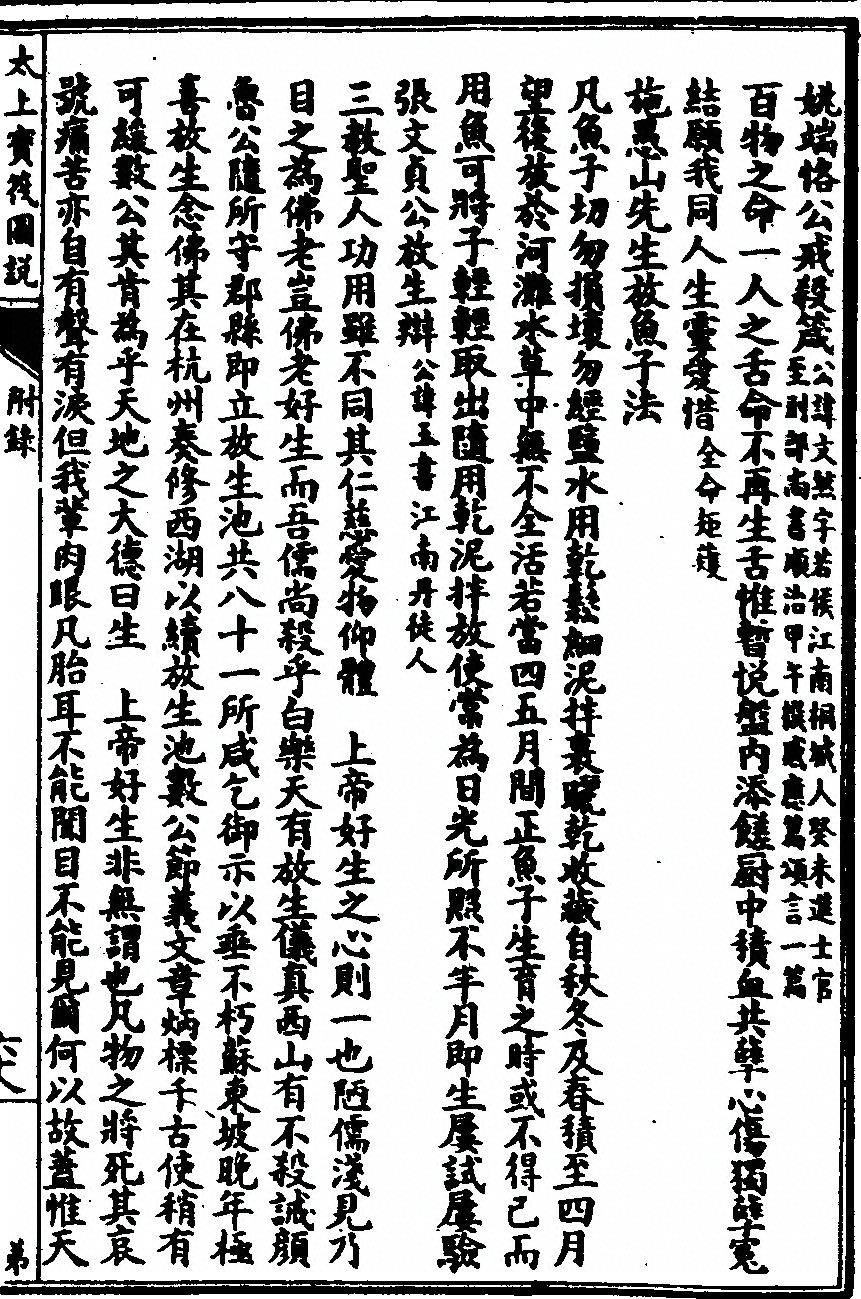 姚端恪公戒殺箴公諱文然字若侯江南桐城人癸未進士官
至刑部尚書順治甲午撰感應篇頌言一篇
百物之命一人之舌命不再生舌惟暫悅盤內添饈厨中積血共孽心傷獨孽寃
結願我同人生靈愛惜全命延
施愚山先生放魚子法
凡魚子切勿損壞勿經鹽水用乾鬆細泥拌裹曬乾收藏自秋冬及春積至四月
望後放於河灘水草中無不全活若當四五月間正魚子生育之時或不得已而
用魚可將子輕輕取出隨用乾泥拌放使常為日光所照不半月即生屢試屢驗
張文貞公放生辯公諱玉書江南丹徒人
三教聖人功用雖不同其仁慈愛物仰體 上帝好生之心則一也陋儒淺見乃
目之為佛老豈佛老好生而吾儒尚殺乎白樂天有放生儀真西山有不殺誡顏
魯公隨所守郡縣即立放生池共八十一所咸乞御示以垂不朽蘇東坡晚年極
喜放生念佛其在杭州奏修西湖以續放生池數公節義文章炳標千古使稍有
可緩數公其肯為乎天地之大德曰生 上帝好生非無謂也凡物之將死其哀
號痛苦亦自有聲有淚但我輩肉眼凡胎耳不能聞目不能見爾何以故蓋惟天
太上寶筏圖說
附錄
六十八
第